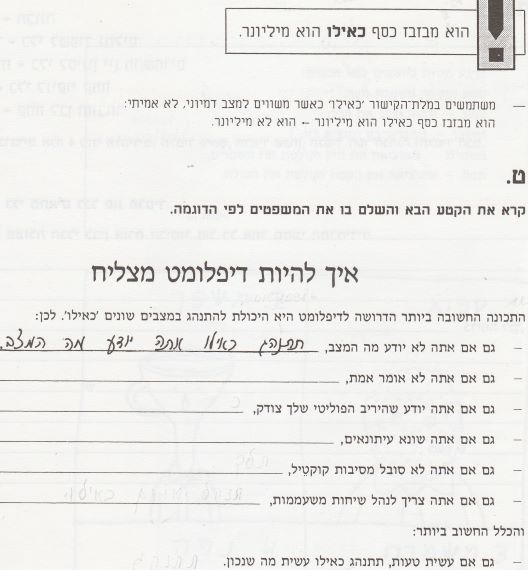 הוא מבזבז כסף כאילו הוא מיליונר.
– משתמשים במלת־הקישור 'כאילו' כאשר משווים למצב דמיוני, לא אמיתי:
הוא מבזבז כסף כאילו הוא מיליונר ← הוא לא מיליונר.
ט.
קרא את הקטע הבא והשלם בו את המשפטים לפי הדוגמה.
איך להיות דיפלומט מצליח
התכונה החשובה ביותר הדרושה לדיפלומט היא היכולת להתנהג במצבים שונים 'כאילו'. לכן:
– גם אם אתה לא יודע מה המצב, תתנהג כאילו אתה יודע מה המצב.
– גם אם אתה לא אומר אמת,
– גם אם אתה יודע שהיריב הפוליטי שלך צודק,
– גם אם אתה שונא עיתונאים,
– גם אם אתה לא סובל מסיבות קוקטֵיל,
– גם אם אתה צריך לנהל שיחות משעממות,
והכלל החשוב ביותר:
– גם אם עשית טעות, תתנהג כאילו עשית מה שנכון.